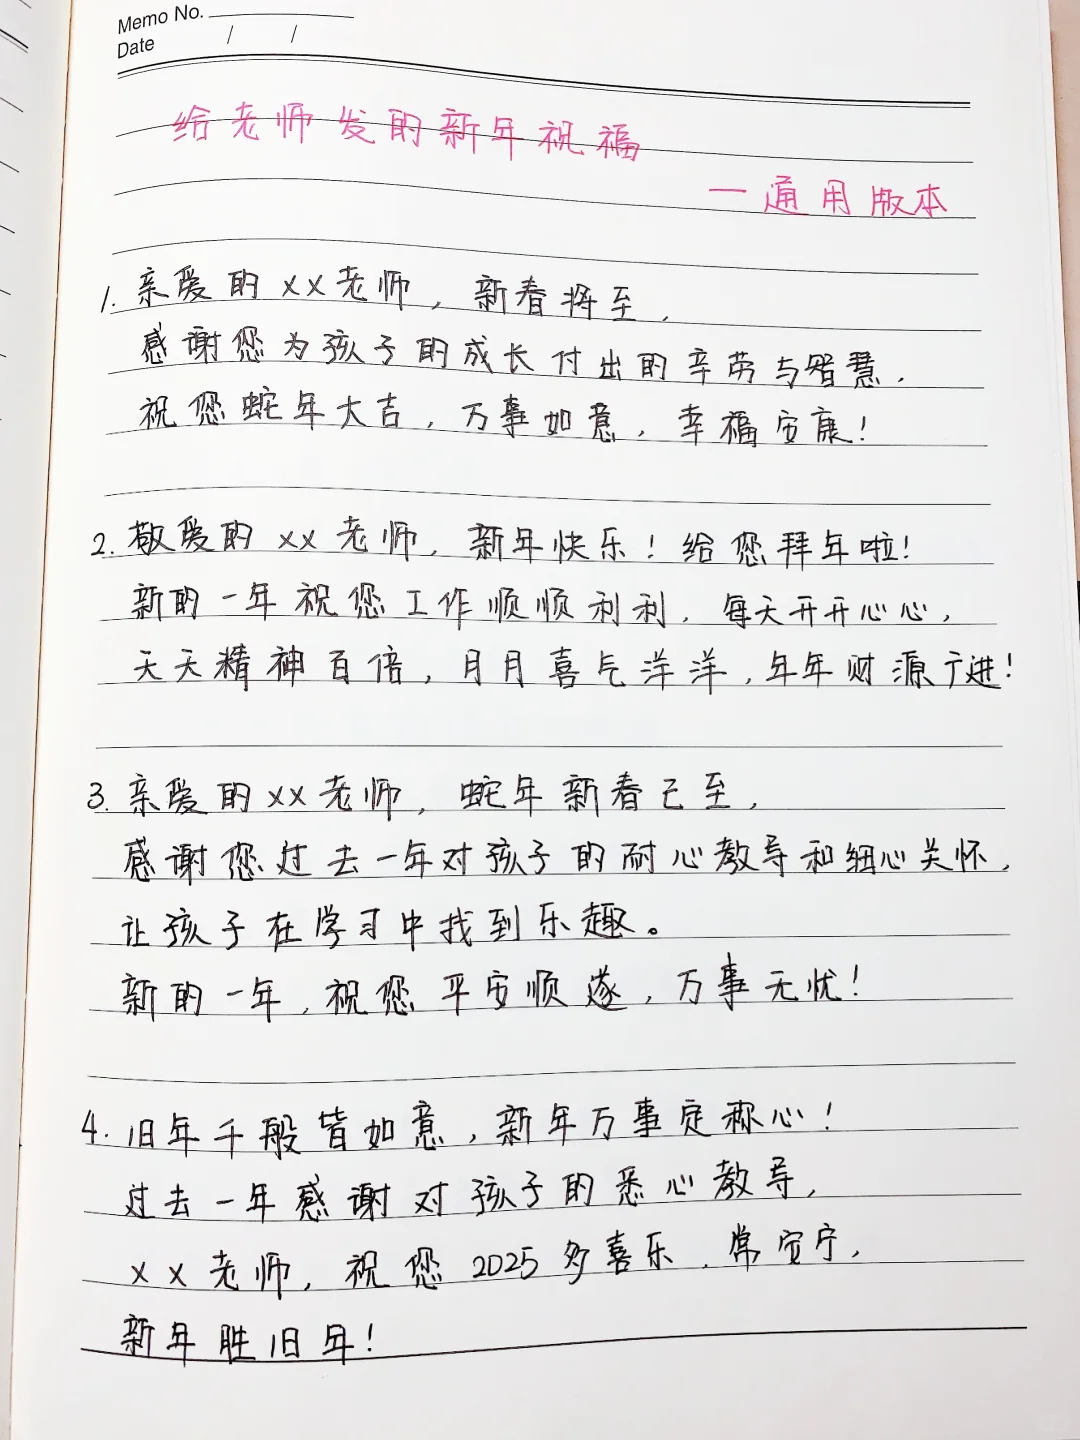 Memo No.
Date / /
给老师发的新年祝福
—通用版本
1. 亲爱的xx老师,新春将至,
感谢您为孩子的成长付出的辛劳与智慧,
祝您蛇年大吉,万事如意,幸福安康!
2. 敬爱的xx老师,新年快乐!给您拜年啦!
新的一年祝您工作顺顺利利,每天开开心心,
天天精神百倍,月月喜气洋洋,年年财源广进!
3. 亲爱的xx老师,蛇年新春已至,
感谢您过去一年对孩子的耐心教导和细心关怀,
让孩子在学习中找到乐趣。
新的一年,祝您平安顺遂,万事无忧!
4. 旧年千般皆如意,新年万事定称心!
过去一年感谢对孩子的悉心教导,
xx老师,祝您2025多喜乐,常安宁,
新年胜旧年!